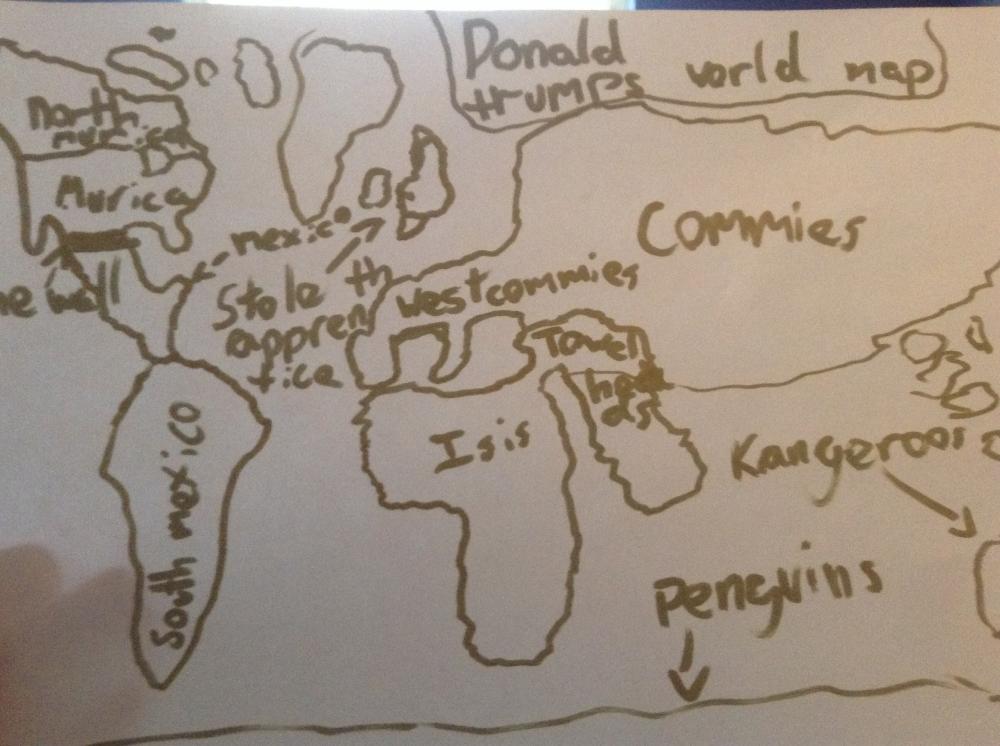 Donald
trumps world map
north
murica
Murica
mexico
the wall
Stole th
appren
tice
west commies
Commies
Towell
heads
Isis
South mexico
Kangeroos
Penguins